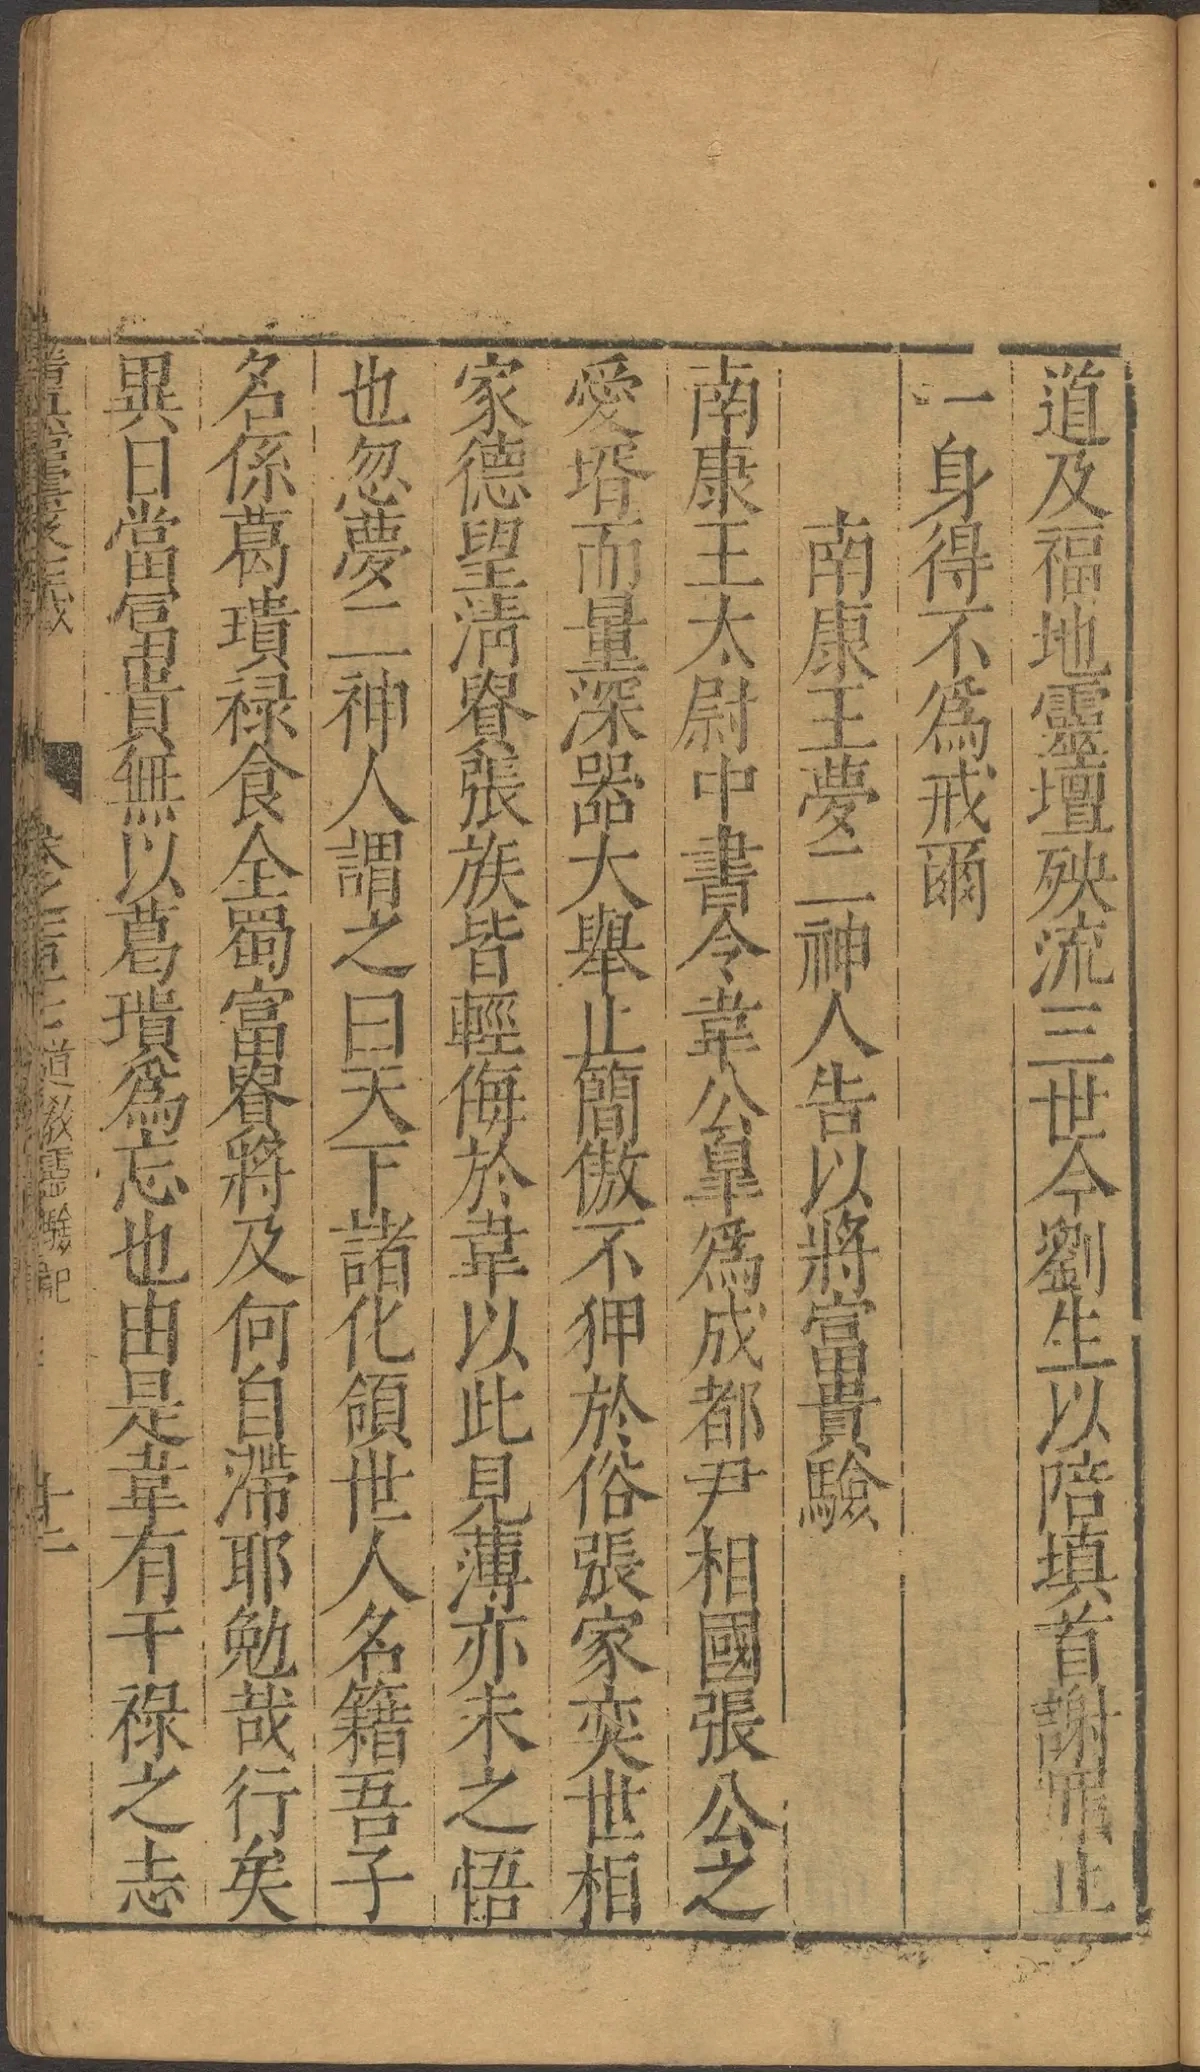 道及福地靈壇殃流三世今劉生以陪填首謝而止
一身得不為戒爾
南康王夢二神人告以將富貴驗
南康王太尉中書令韋公臯為成都尹相國張公之
愛壻而量深器大舉止簡傲不狎於俗張家奕世相
家德望清貴張族皆輕侮於韋以此見薄亦未之悟
也忽夢二神人謂之曰天下諸化領世人名籍吾子
名係葛璝祿食全蜀富貴將及何自滯耶勉哉行矣
異日當富貴無以葛璝為忘也由是韋有干祿之志
卷之 道教靈驗記 十二